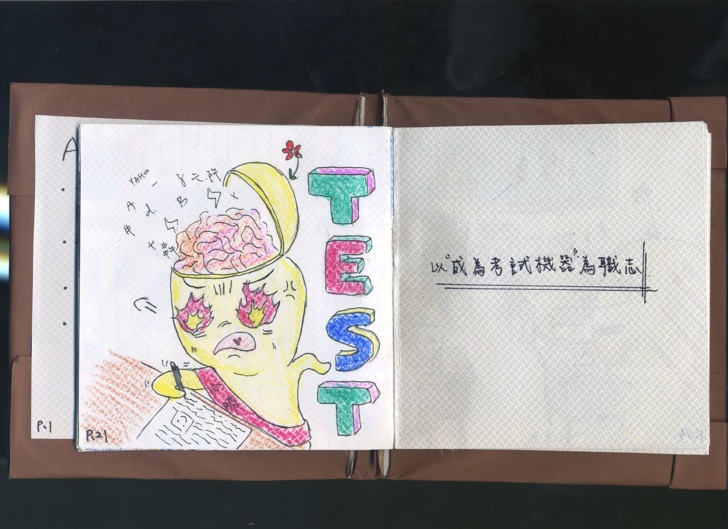 A
YAHOO
A d B x
TEST
以"成為考試機器"為職志
P.1
P.21